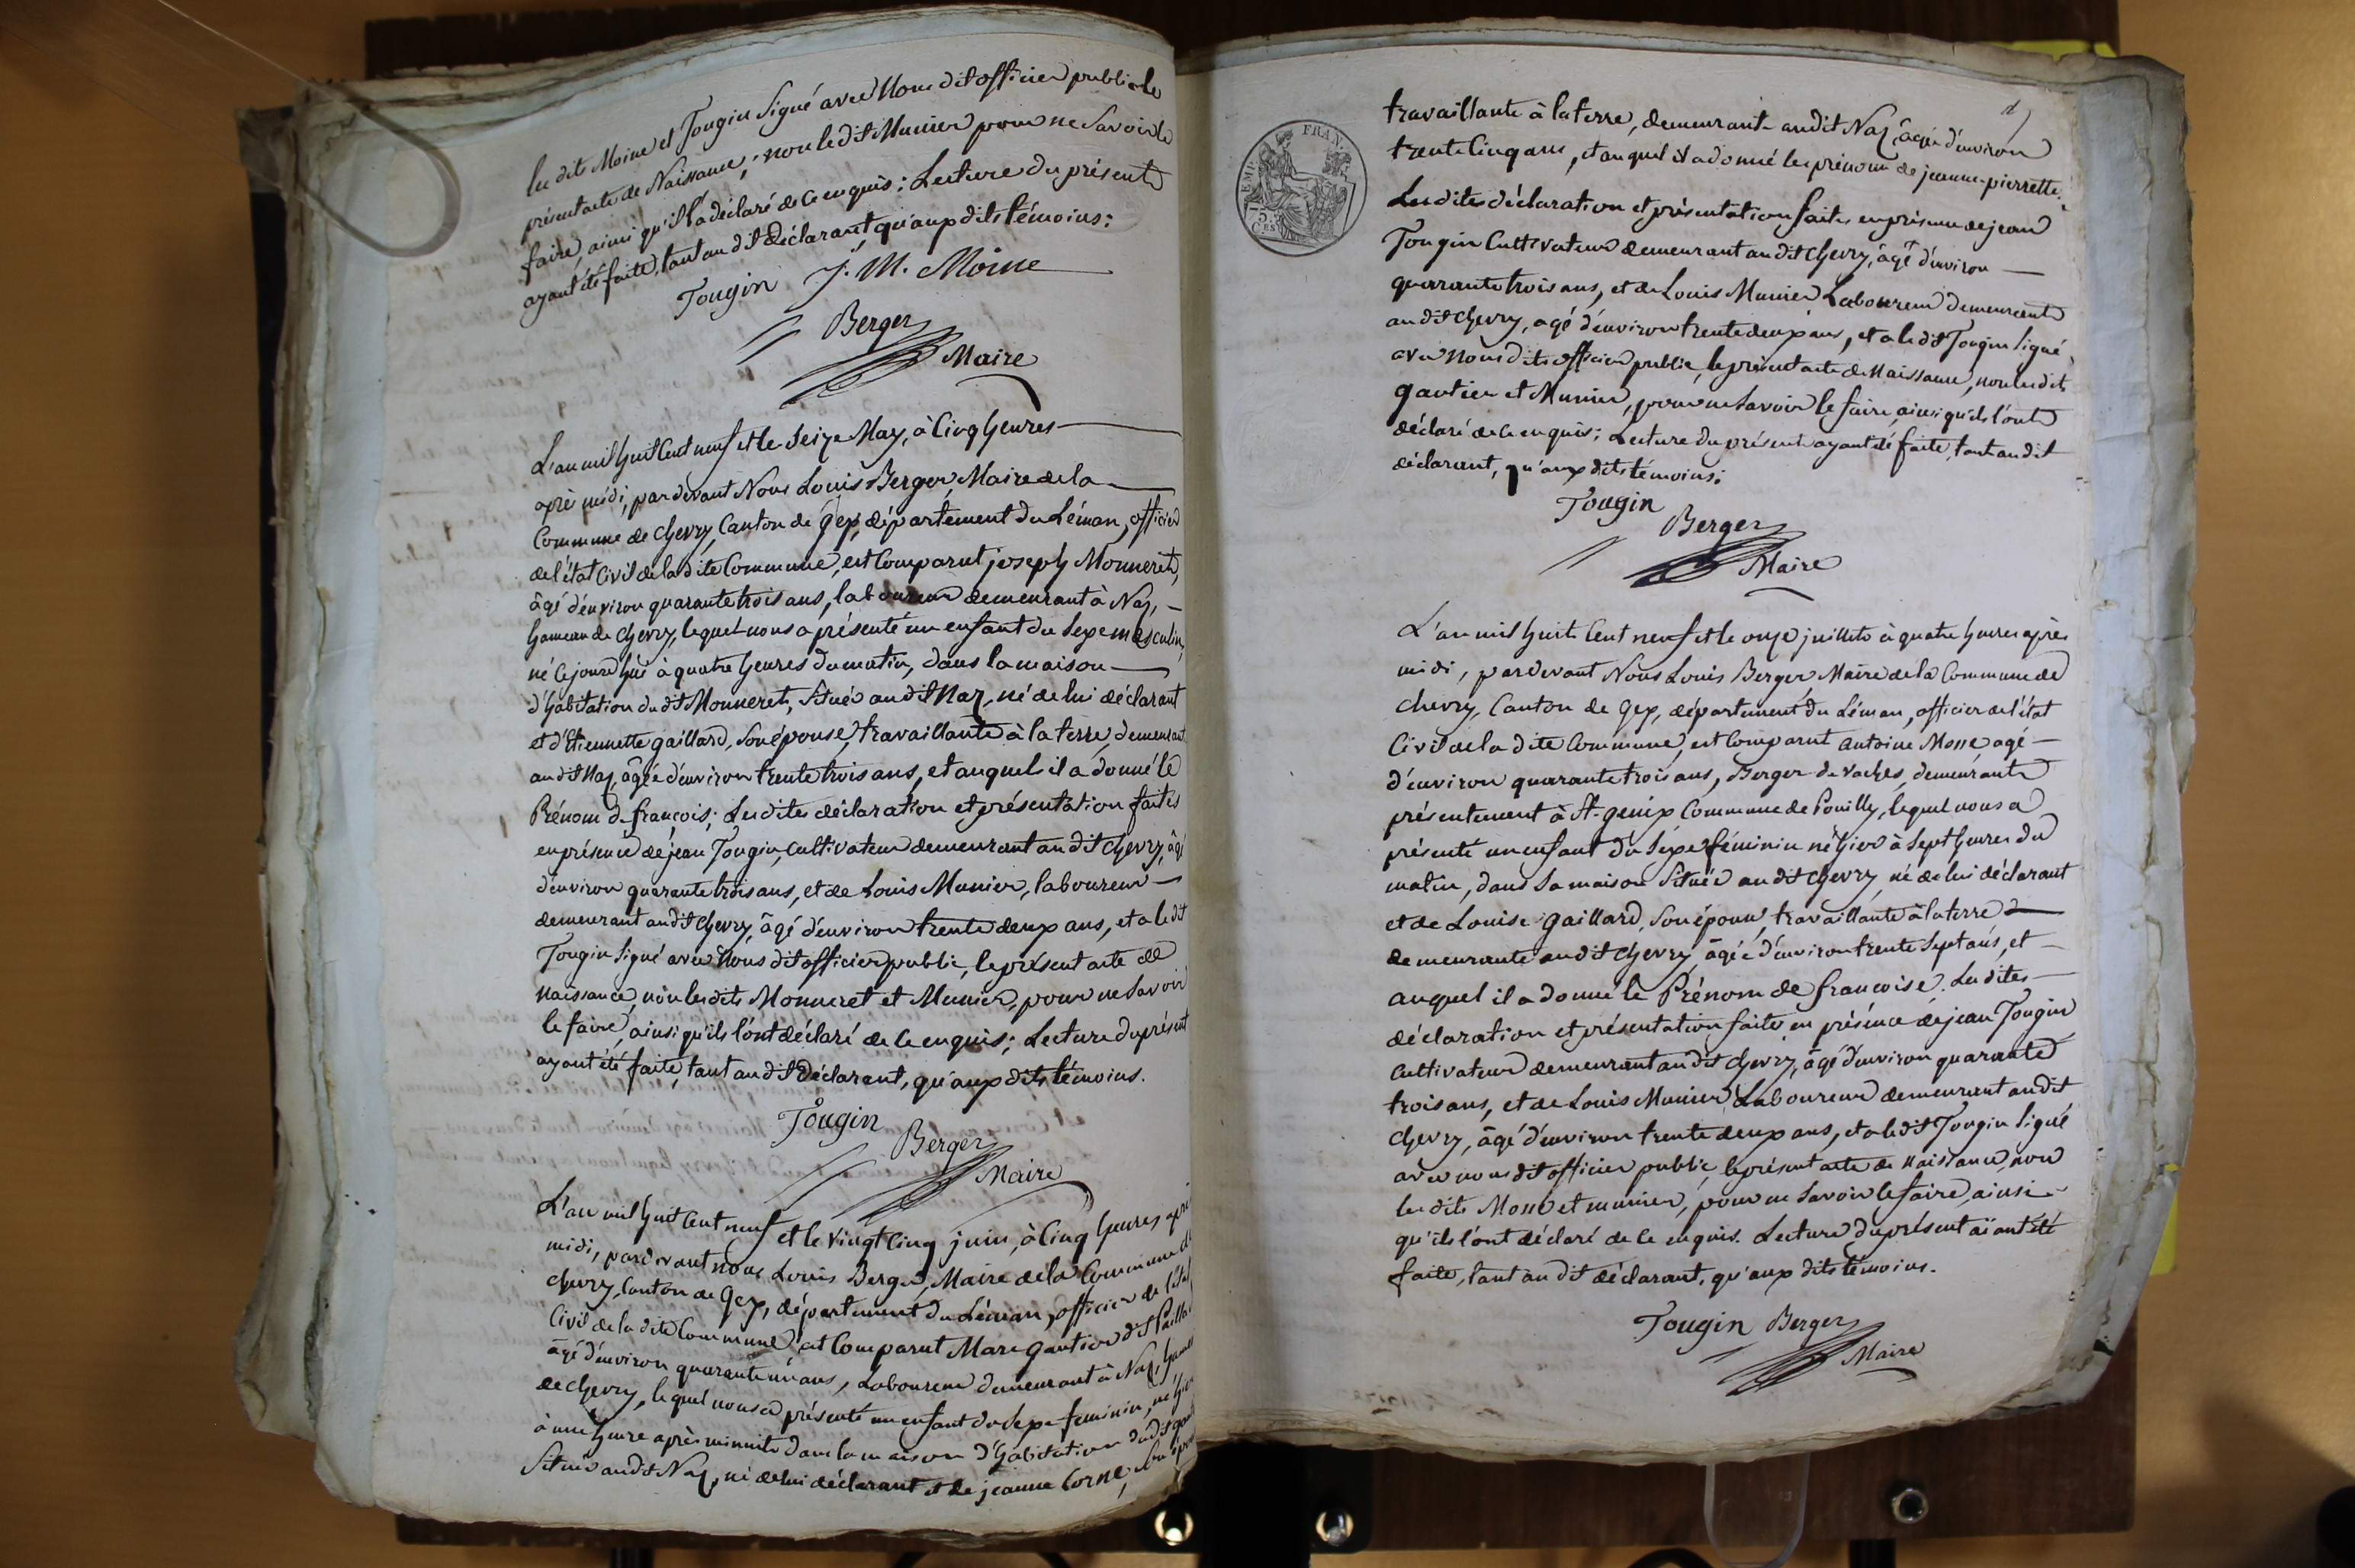 les dits Moine et Tougin Signé avec Nous dit officier public le
présent acte de Naissance; non le dit Munier pour ne Savoir le
faire, ainsi qu'il l'a déclaré de ce enquis; Lecture du présent
ayant été faite, tant au dit Déclarant, qu'aux dits témoins:
Tougin J. M. Moine
Berger
Maire
L'an mil huit Cent neuf et le Seize May, à Cinq heures
après midi, pardevant Nous Louis Berger, Maire de la
Commune de Chevry, Canton de Gex, département du Léman, officier
de l'état Civil de la dite Commune, est Comparut joseph Monneret,
âgé d'environ quarante trois ans, laboureur demeurant à Naz,
hameau de Chevry, lequel nous a présenté un enfant du Sexe masculin,
né Cejourd'hui à quatre heures du matin, dans la maison
d'habitation du dit Monneret, Située au dit Naz, né de lui déclarant
et d'Etiennette gaillard, Son épouse, travaillante à la terre, demeurant
au dit Naz, âgée d'environ trente trois ans, et auquel il a donné le
Prénom de françois; Les dites déclaration et présentation faites
en présence de jean Tougin, Cultivateur demeurant au dit Chevry, âgé
d'environ quarante trois ans, et de Louis Munier, laboureur
demeurant au dit Chevry, âgé d'environ trente deux ans, et a le dit
Tougin Signé avec Nous dit officier public, le présent acte de
Naissance, non les dits Monneret et Munier, pour ne Savoir
le faire, ainsi qu'ils l'ont déclaré de ce enquis; Lecture du présent
ayant été faite, tant au dit Déclarant, qu'aux dits témoins.
Tougin
Berger
Maire
L'an mil huit Cent neuf et le Vingt Cinq juin, à Cinq heures après
midi, pardevant nous Louis Berger, Maire de la Commune de
Chevry, Canton de Gex, département du Léman, officier de l'état
Civil de la dite Commune est Comparut Marc gautier dit
âgé d'environ quarante un ans, Laboureur demeurant à Naz, hameau
de Chevry, lequel nous a présenté un enfant du Sexe feminin, né hier
à une heure après minuit dans la maison d'habitation du dit
Située au dit Naz, né de lui déclarant et de jeanne Corne, Son
travaillante à la terre, demeurant au dit Naz, âgée d'environ
trente Cinq ans, et auquel il a donné les prénoms de jeanne-pierrette.
Les dites déclaration et présentation faites en présence de jean
Tougin Cultivateur demeurant au dit Chevry, âgé d'environ
quarante trois ans, et de Louis Munier Laboureur demeurant
au dit Chevry, âgé d'environ trente deux ans, et a le dit Tougin Signé
avec Nous dit officier public, le présent acte de Naissance, non les dits
gautier et Munier, pour ne Savoir le faire, ainsi qu'ils l'ont
déclaré de ce enquis; Lecture du présent ayant été faite, tant au dit
déclarant, qu'aux dits témoins;
Tougin
Berger
Maire
L'an mil huit Cent neuf et le onze juillet à quatre heures après
midi, pardevant Nous Louis Berger, Maire de la Commune de
Chevry, Canton de Gex, département du Léman, officier de l'état
Civil de la dite Commune, est Comparut antoine Mone agé
d'environ quarante trois ans, Berger de vaches, demeurant
présentement à St. genix Commune de Pouilly, lequel nous a
présenté un enfant du Sexe féminin né hier à Sept heures du
matin, dans Sa maison Située au dit Chevry, né de lui déclarant
et de Louise gaillard, Son épouse, travaillante à la terre
demeurante au dit Chevry, âgée d'environ trente Sept ans, et
auquel il a donné le Prénom de francoise. Les dites
déclaration et présentation faites en présence de jean Tougin
Cultivateur demeurant au dit Chevry, âgé d'environ quarante
trois ans, et de Louis Munier Laboureur demeurant au dit
Chevry, âgé d'environ trente deux ans, et a le dit Tougin Signé
avec nous dit officier public, le présent acte de Naissance, non
les dits Mone et munier, pour ne Savoir le faire, ainsi
qu'ils l'ont déclaré de ce enquis. Lecture du présent aïant été
faite, tant au dit déclarant, qu'aux dits témoins.
Tougin Berger
Maire
EMP. FRAN.
75
CES